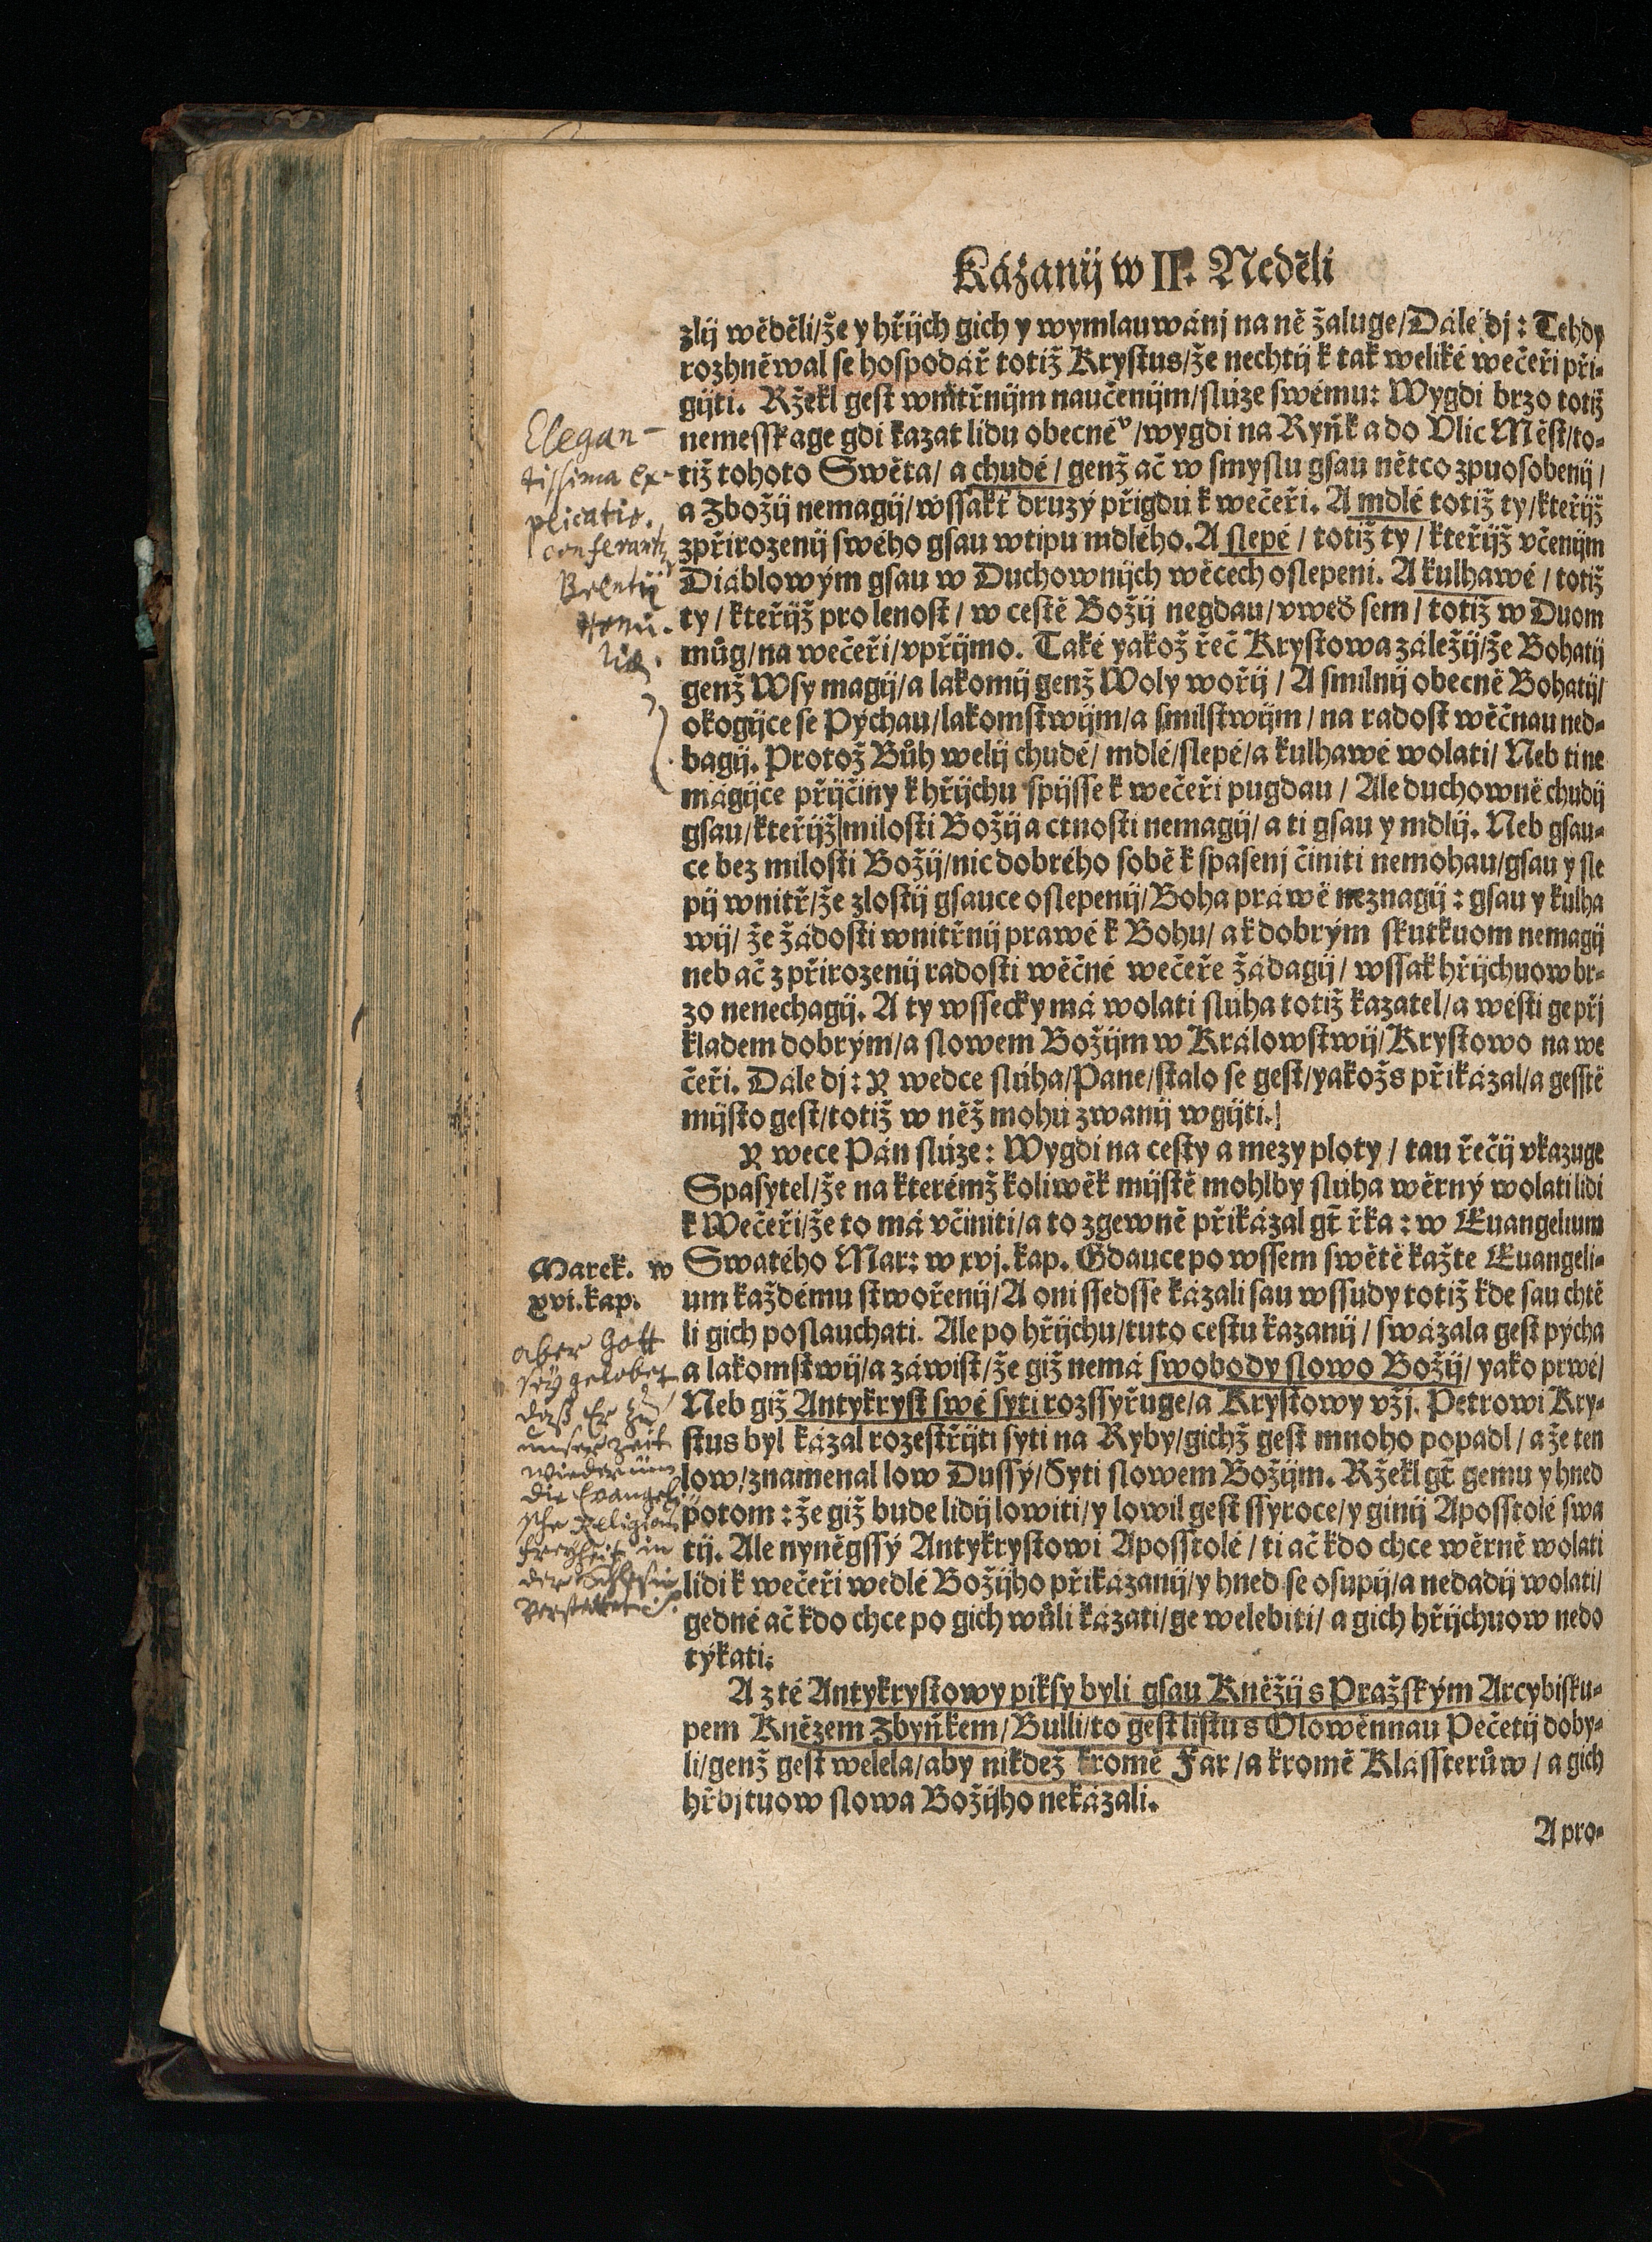 Kázanij w II. Neděli
zlij wěděli/že y hřijch gich y wymlauwánj na ně žaluge/Dále dj: Tehdy
rozhněwal se hospodář totiž Krystus/že nechtij k tak weliké wečeři při-
gijti. Ržekl gest wnitřnijm naučenijm/slúze swému: Wygdi brzo totiž
nemesskage gdi kazat lidu obecnéº/wygdi na Ryňk a do Vlic Měst/to-
tiž tohoto Swěta/ a chudé/ genž ač w smyslu gsau nětco zpuosobenij/
a Zbožij nemagij/wssakť druzý přigdú k wečeři. A mdlé totiž ty/kteřijž
zpřirozenij swého gsau wtipu mdlého. A slepé / totiž ty / kteřijž včenijm
Diáblowým gsau w Duchownijch wěcech oslepeni. A kulhawé / totiž
ty / kteřijž pro lenost / w cestě Božij negdau/vweď sem / totiž w Duom
můg/na wečeři/vpřijmo. Také yakož řeč Krystowa záležij/že Bohatij
genž Wsy magij/a lakomij genž Woly wořij / A smilnij obecně Bohatij/
okogijce se Pýchau/lakomstwijm/a smilstwijm / na radost wěčnau ned-
bagij. Protož Bůh welij chudé/ mdlé/slepé/a kulhawé wolati/ Neb ti ne
magijce přijčiny k hřijchu spijsse k wečeři pugdau / Ale duchowně chudij
gsau/kteřijž milosti Božij a ctnosti nemagij/ a ti gsau y mdlij. Neb gsau-
ce bez milosti Božij/nic dobrého sobě k spasenj činiti nemohau/gsau y sle
pij wnitř/že zlostij gsauce oslepenij/Boha práwě neznagij: gsau y kulha
wij/ že žádosti wnitřnij prawé k Bohu/ a k dobrým skutkuom nemagij
neb ač z přirozenij radosti wěčné wečeře žádagij/ wssak hřijchuow br-
zo nenechagij. A ty wssecky má wolati slúha totiž kazatel/a wésti ge při
kladem dobrým/a slowem Božijm w Králowstwij/Krystowo na we
čeři. Dále dj: Y wedce slúha/Pane/stalo se gest/yakožs přikázal/a gesstě
mijsto gest/totiž w něž mohú zwanij wgijti.
Y wece Pán slúze: Wygdi na cesty a mezy ploty / tau řečij vkazuge
Spasytel/že na kterémž koliwěk mijstě mohlby slúha wěrný wolati lidi
k Wečeři/že to má včiniti/a to zgewně přikázal gť řka: w Euangelium
Marek. w
xvi. kap.
Swatého Mar: w xvj. kap. Gdauce po wssem swětě kažte Euangeli-
um každému stwořenij/A oni ssedsse kázali sau wssudy totiž kde sau chtě
li gich poslauchati. Ale po hřijchu/tuto cestu kazanij / swázala gest pýcha
a lakomstwij/a záwist/že giž nemá swobody slowo Božij/ yako prwé/
Neb giž Antykryst swé syti rozssyřuge/a Krystowy vžj. Petrowi Kry-
stus byl kázal rozestřijti syti na Ryby/gichž gest mnoho popadl / a že ten
low/znamenal low Dussý/Syti slowem Božijm. Ržekl gť gemu y hned
potom: že giž bude lidij lowiti/y lowil gest ssyroce/y ginij Aposstolé swa
tij. Ale nyněgssý Antykrystowi Aposstolé / ti ač kdo chce wěrně wolati
lidi k wečeři wedlé Božijho přikázanij/y hned se osupij/a nedadij wolati/
gedné ač kdo chce po gich wůli kázati/ge welebiti/ a gich hřijchuow nedo
týkati:
A z té Antykrystowy piksy byli gsau Kněžij s Pražským Arcybisku-
pem Knězem Zbyňkem/Bulli/to gest listu s Olowěnnau Pečetij doby-
li/genž gest welela/aby nikdež kromě Far/a kromě Klássterůw / a gich
hřbjtuow slowa Božijho nekázali.
A pro-
Elegan-
tissima ex-
plicatio.
conferantur
Brentij
Homi-
liæ.
aber Gott
seÿ gelobet
daß Er zu
unser zeit
wiederumb
die Evangeli
sche Religion
Freyheit in
der Schlesien
verstattet.